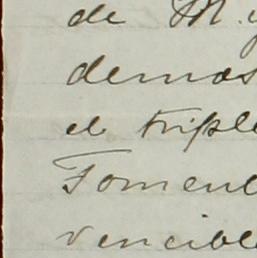 de M. y
demas
el triple
Foment
vencible